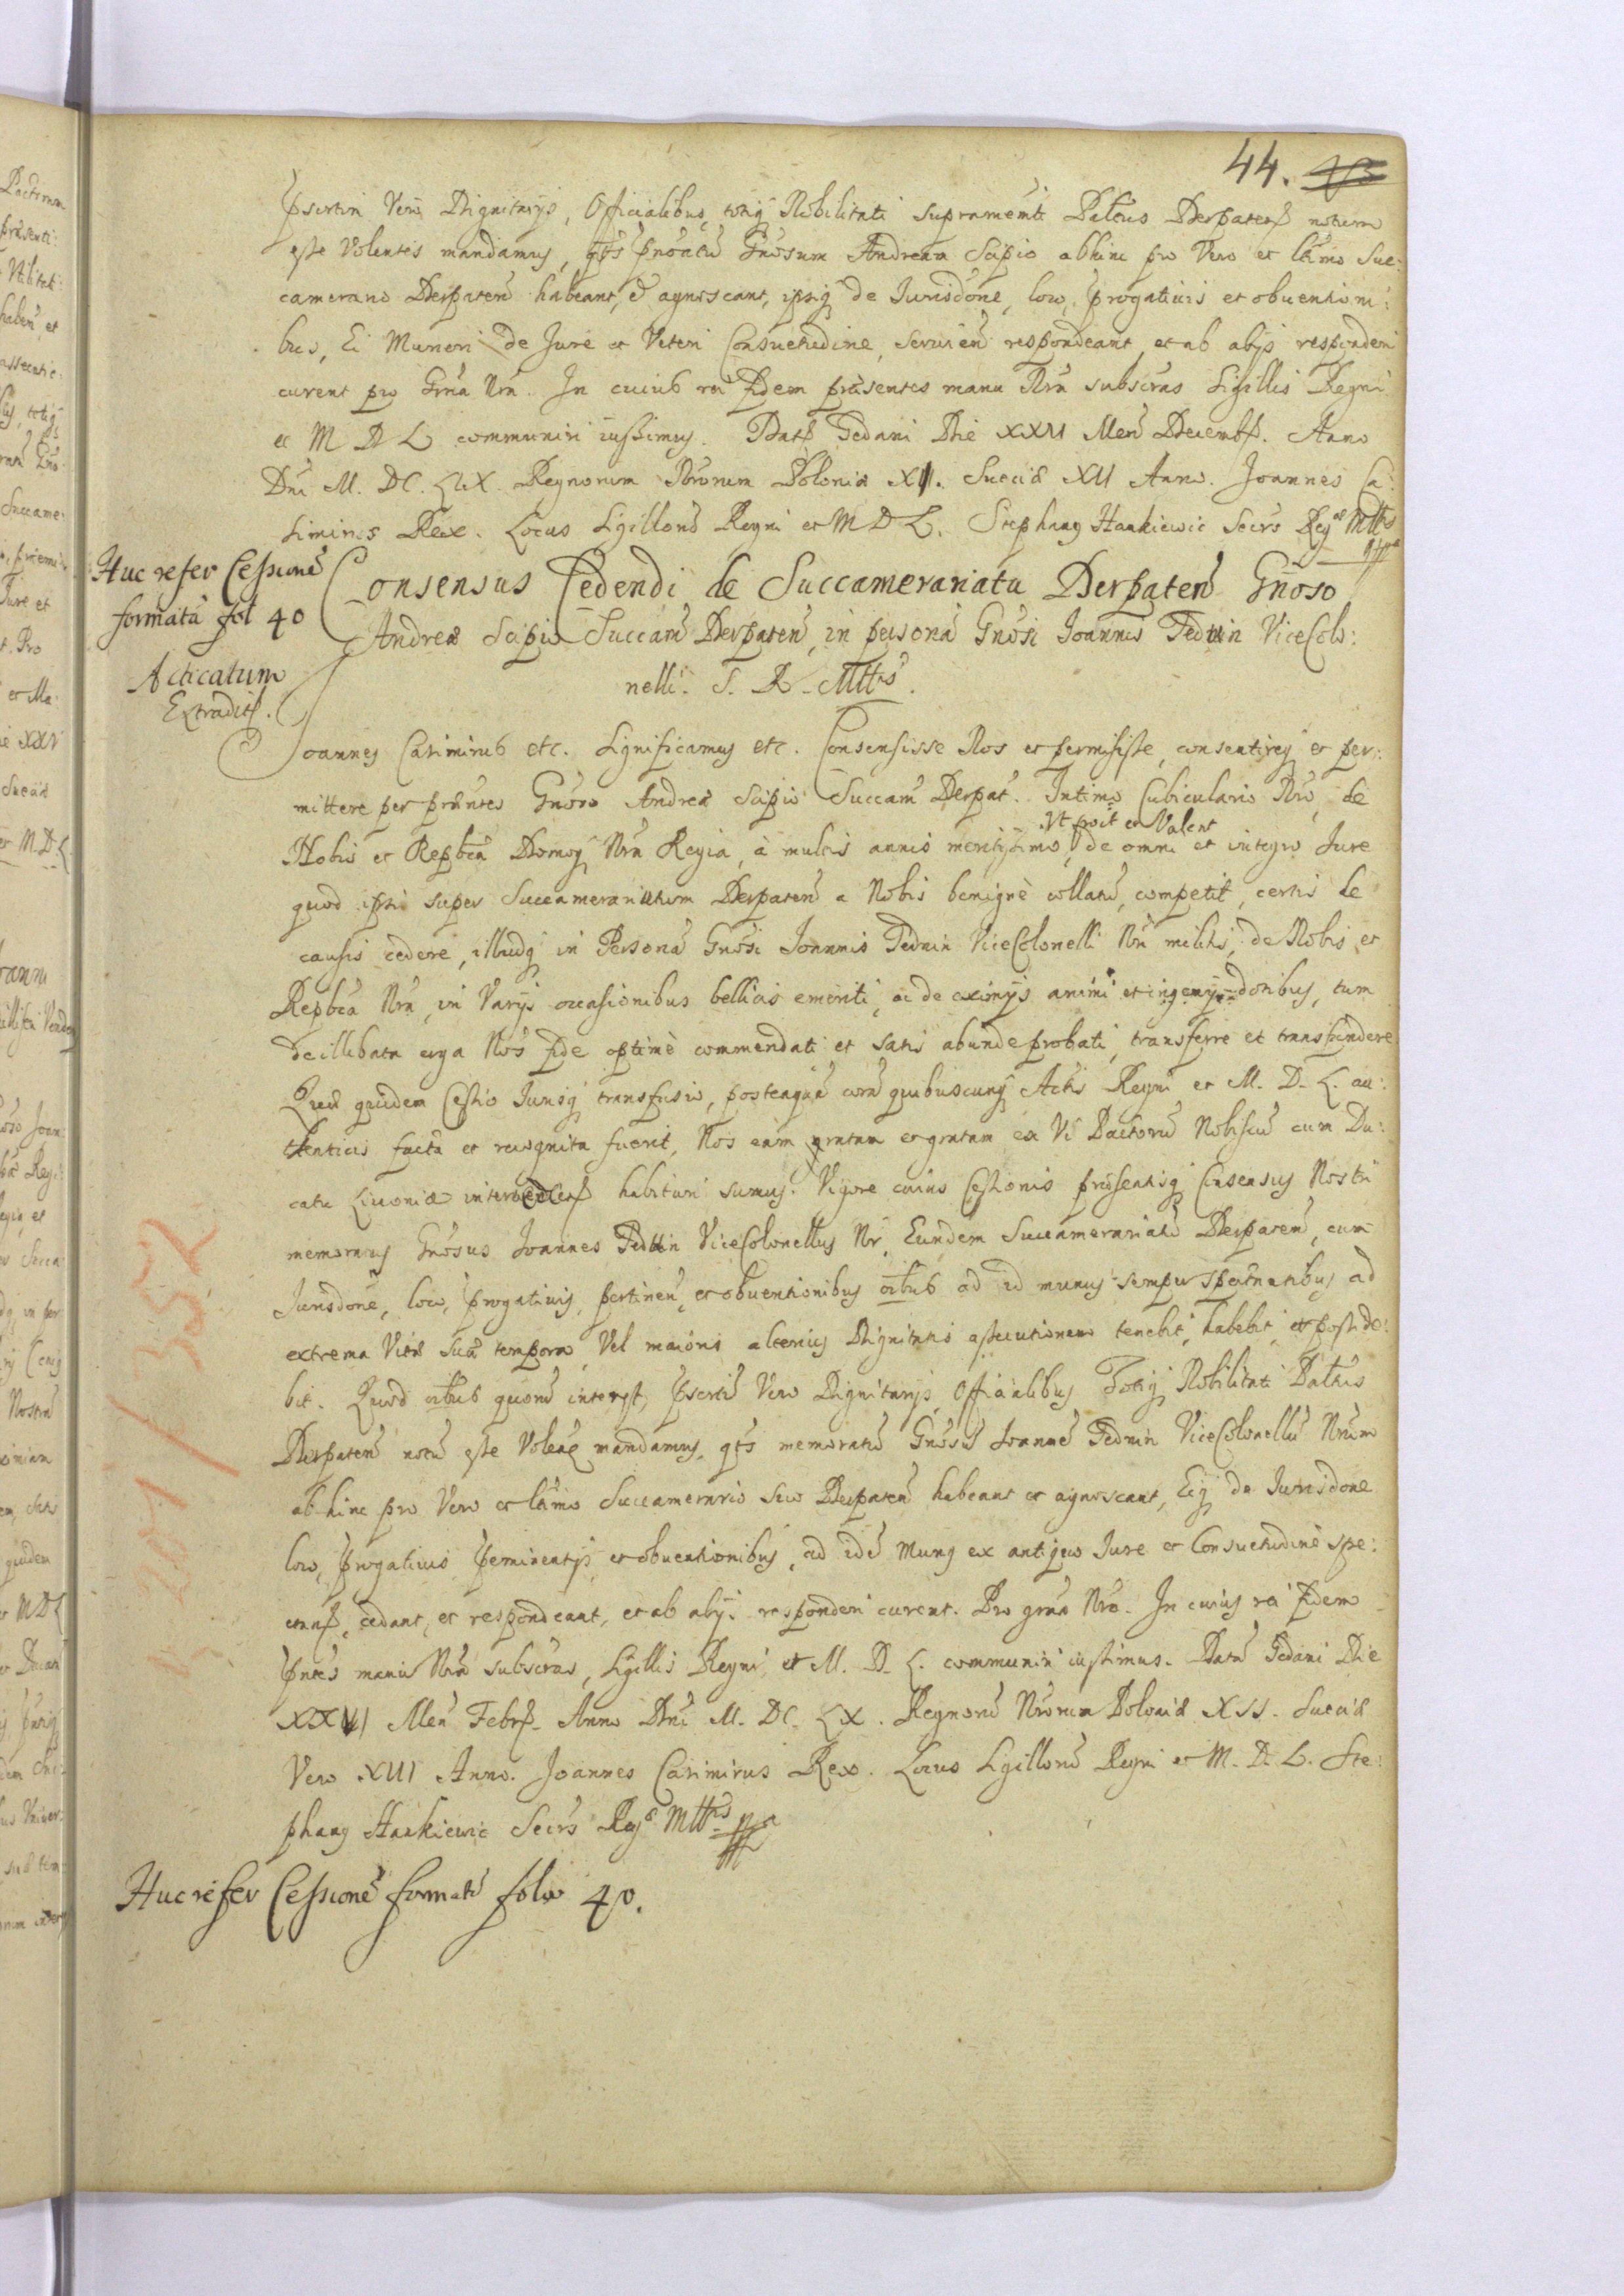 44. 43
Psertim Vero Dignitarijs, Officialibus, totiq Nobilitati supramemti Palтus Derpateñ notum
esse Volentes mandamus, qts pnoatũ Gnosum Andream Scipio abhinc pro Vero et ltimo Suc:
camerario Derpateñ habeant, & agnoscant, ipsiq de Jurisdõne, loco, progativis et obventioni:
bus, Ei Muneri de Jure et Veteri Consuetudine, servieñ respondeant, et ab alijs responderi
curent pro Grña Nrã. In cuius rei fidem præsentes manu Nrã subscras Sigillis Regni
et M D L communiri iussimus. Dat Gedani Die XXVI Meñ Decemb. Anno
Dni M. DC. LIX Regnorum Nrorum Poloniæ XI. Sueciæ XII Anno. Joannes Ca:
simirus Rex. Locus Sigillorũ Regni et M D L. Stephang Hankiewic Secrs Regæ Mttis
mpp
Huc refer Cessionẽ
formatã fol 40
Consensus Cedendi de Succamerariatu Derpateñ Gñoso
Andreæ Scipio Succam̃ Derpateñ, in personã Gnosi Joannis Teduin ViceColo:
nelli. S. R. Mttis.
Acticatum
Extradit.
Joannes Casimirus etc. Significamus etc. Consensisse Nos et permisisse, consentireq et per:
mittere per præntes Gnoso Andreæ Scipio Succam̃ Derpat. Intimo Cubiculario Nro, de
Ut proit et Valent
Nobis et Repbcã Domoq Nrã Regia, à multis annis meritissimo, de omni et integro Jure
quod ipsi super Succamerariatum Derpateñ a Nobis benignè collatũ, competit, certis de
causis cedere, illudq in Personã Gnosi Joannis Teduin ViceColonelli Nri militis, de Nobis et
Repbcã Nrã, in Varijs occasionibus bellicis emeriti, ac de eximijs animi et ingenij dotibus, tum
de illibata erga Nos fide optimè commendati et satis abunde probati, transferre et transfundere
Quæ quidem Cessio Jurisq transfusio, posteaquã corã quibuscunq Actis Regni et M. D. L. au:
thenticis facta et recognita fuerit, Nos eam gratam et gratam ex Vi Pactorũ Nobiscũ cum Du:
catu Livoniæ habituri sumus. Vigore cuius Cessionis præsentisq Consensus Nostri
memoratus Gnosus Joannes Teduin ViceColonellus Nr, Eundem Succamerariatũ Derpateñ, cum
Jurisdõne, loco, progativis, pertineñ, et obventionibus oĩbus ad id munus semper spectantibus, ad
extrema Vitæ suæ tempora, Vel maioris alterius Dignitatis assecutionem tenebit, habebit, et posside:
bit. Quod oĩbus quorũ interest, Psertĩ Vero Dignitarijs, Officialibus Totiq Nobilitati Paltus
Derpateñ notũ esse Volentes mandamus, qts memoratũ Gnosũ Joannẽ Teduin ViceColonellũ Nrum
abhinc pro Vero et ltimo Succamerario suo Derpateñ habeant et agnoscant, Eiq de Jurisdõne
loco, progativis, Peminentijs et obventionibus, ad idẽ Munq ex antiquo Jure et Consuetudine spe:
ctañ, cedant, et respondeant, et ab alijs responderi curent. Pro grãa Nra. In cuius rei fidem
Pntes manu Nrã subscras, Sigillis Regni et M. D. L. communiri iussimus. Datũ Gedani Die
XXVI Meñ Febr. Anno Dni M. DC. LX. Regnorũ Nrorum Poloniæ XII. Sueciæ
Vero XIII Anno. Joannes Casimirus Rex. Locus Sigillorũ Regni et M. D. L. Ste:
phang Hankiewic Secrs Regæ Mttis mpp
Huc refer Cessionẽ formatã folio 40.